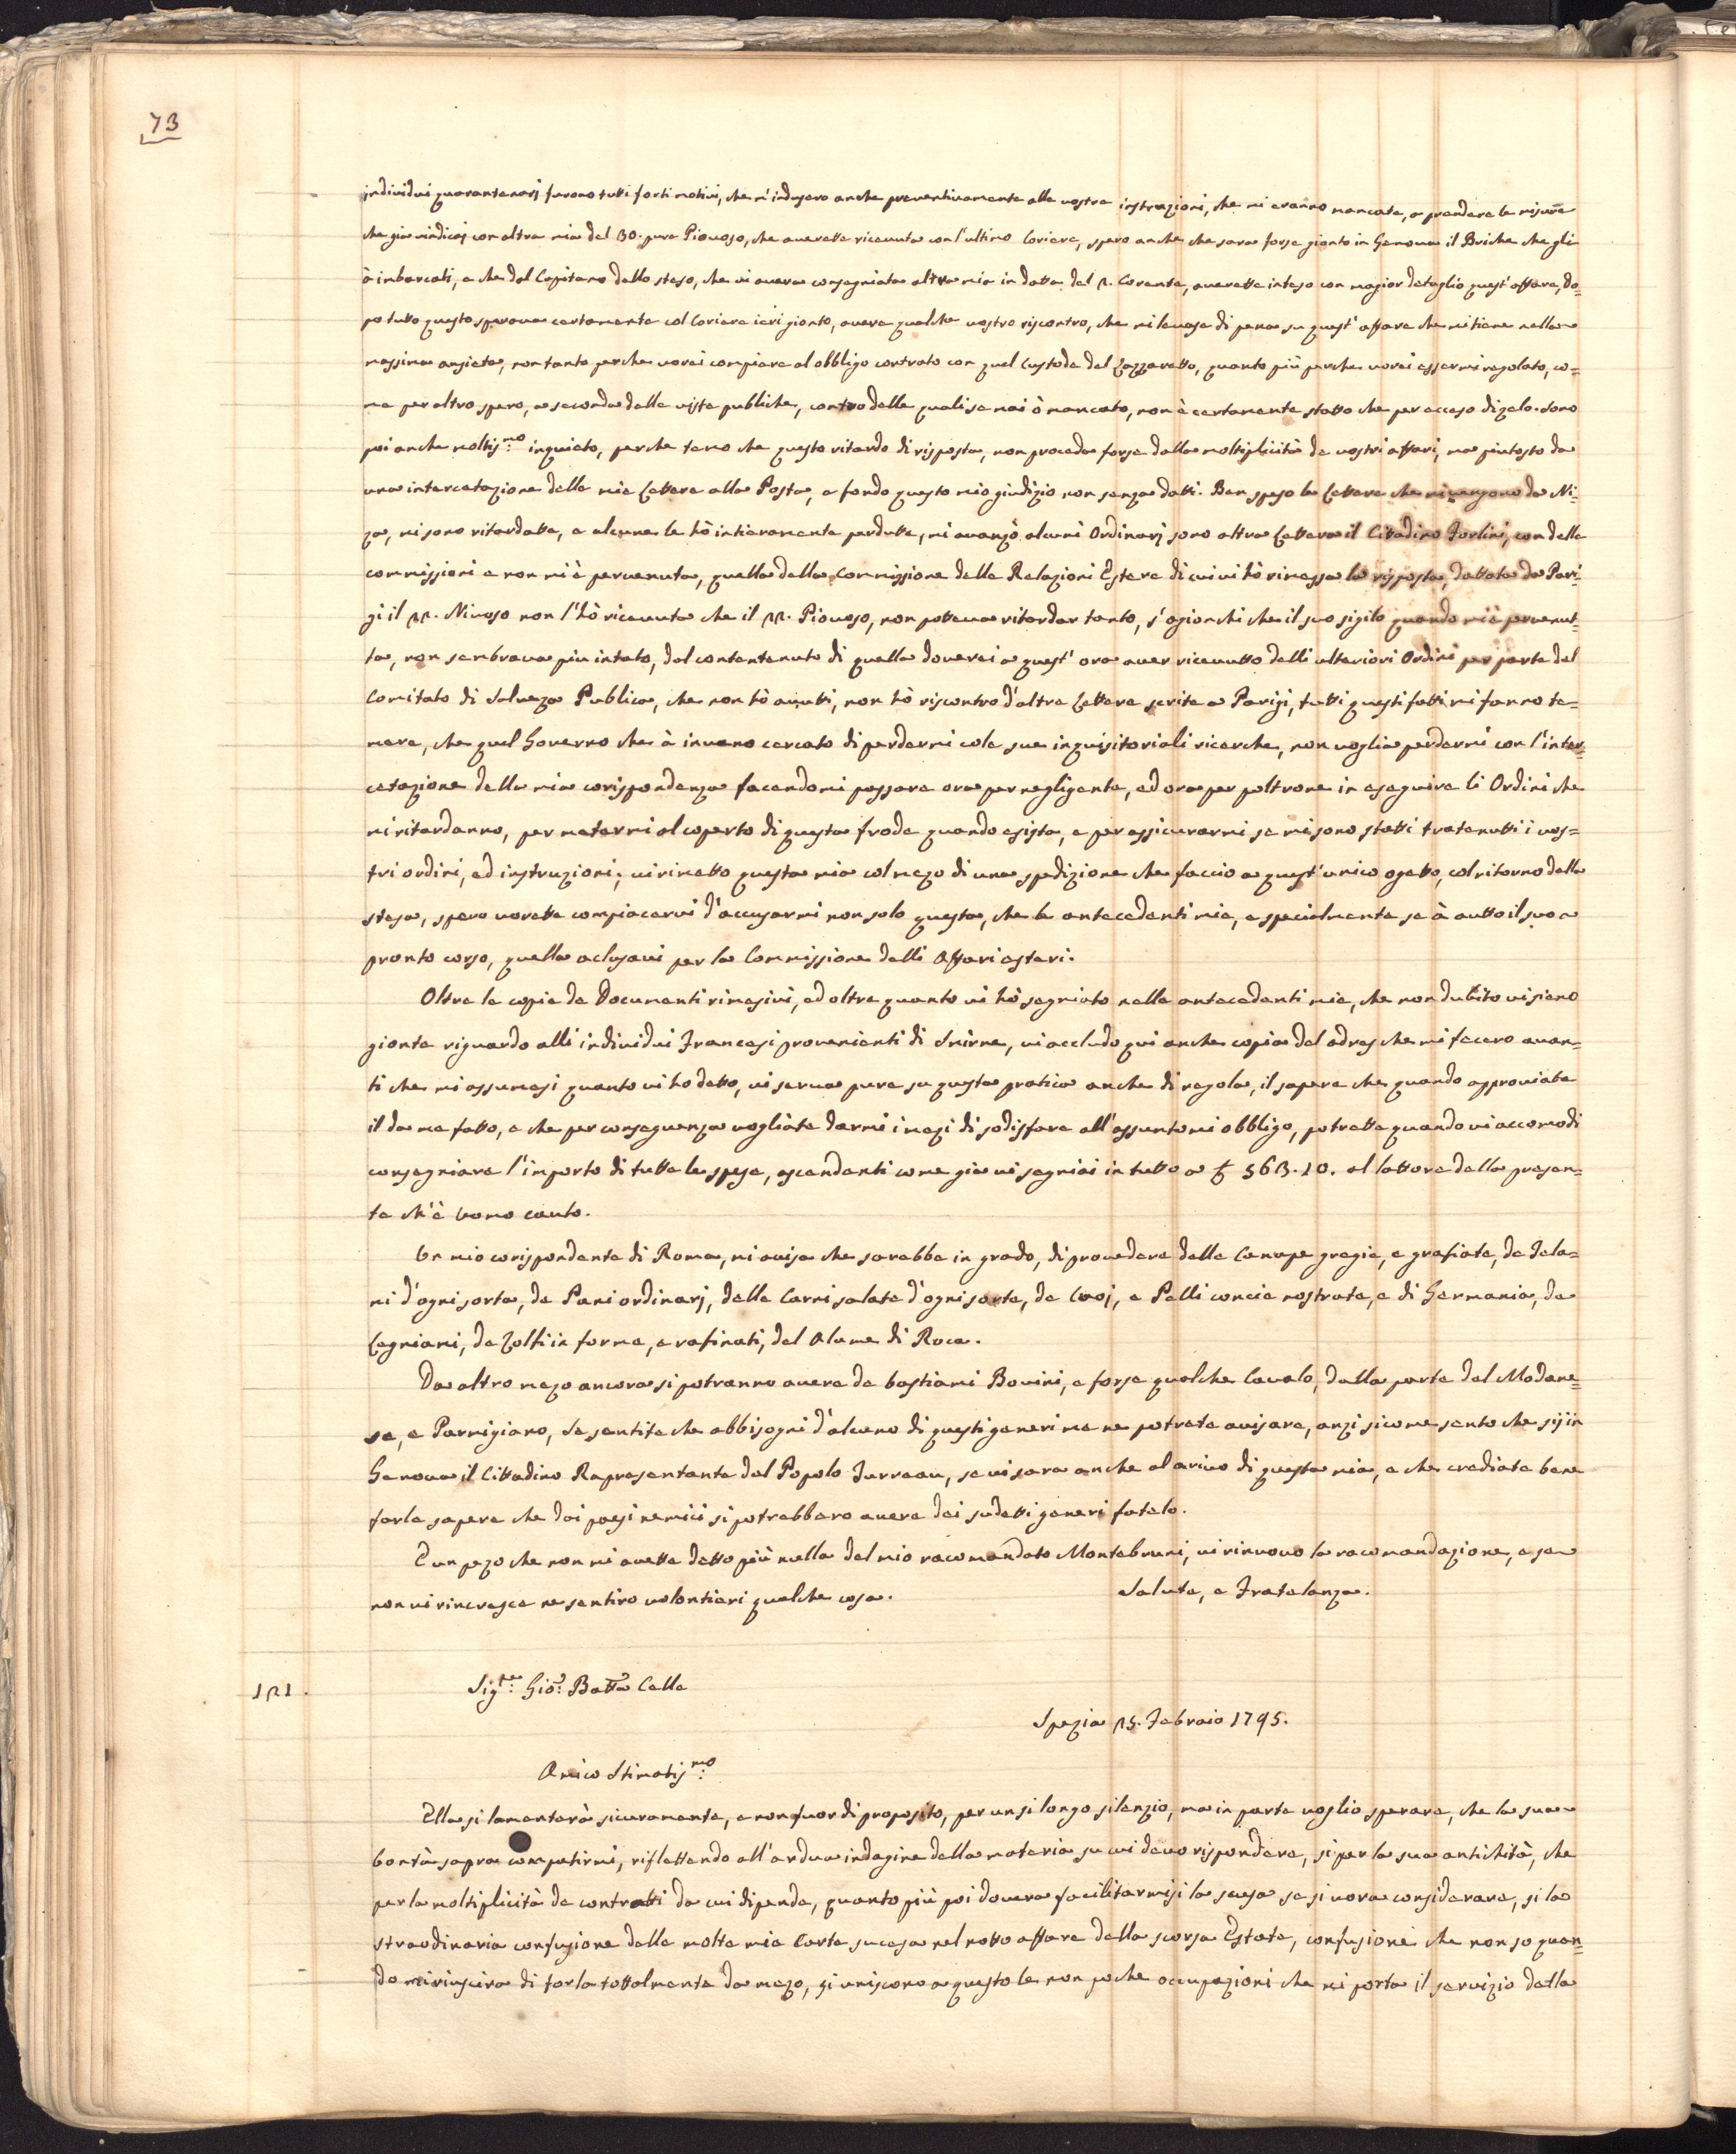 73
individui quarantenarj furono tutti forti motivi, che m'indusero anche preventivamente alle vostre instruzioni, che mi eranno mancate, a prendere le misure
che già v'indicai con altra mia del 30. pure Piovoso, che averette ricevuta con l'ultimo Coriere, spero anche che sara forse gionto in Genova il Briche che gli
à imbarcati, e che dal Capitano dello steso, che vi avera consegniata altra mia in datta del 2. Corente, averette inteso con magior detaglio quest'affare, do=
po tutto questo sperava certamente col Coriere ieri gionto, avere qualche vostro riscontro, che mi levase di pena su quest'affare che mi tiene nella
massima ansieta, non tanto perche vorei compiere al obbligo contrato con quel Custode del Lazzaretto, quanto più perche vorei essermi regolato, co=
me per altro spero, a seconda delle viste publiche, contro delle quali se mai ò mancato, non è certamente statto che per acceso di zelo. Sono
poi anche moltis:mo inquieto, perche temo che questo ritardo di risposta, non proceda forse dalla moltiplicità de vostri affari, ma piutosto da
una intercetazione delle mie Lettere alla Posta, e fondo questo mio giudizio non senza datti. Ben speso le Lettere che mi vengono da Ni=
za, mi sono ritardatte, e alcune le hò intieramente perdutte, mi avanzò alcuni Ordinarj sono altra Lettera il Citadino Torlini, con delle
commissioni e non mi è pervenuta, quella della Commissione delle Relazioni Estere di cui vi hò rimessa la risposta, dattata da Pari=
gi il 22. Nivoso non l'hò ricevuta che il 22. Piovoso, non poteva ritardar tanto, s'agionchi che il suo sigilo quando mi è pervenut=
ta, non sembrava piu intato, dal contentenuto di quella doverei a quest'ora aver ricevutto delli ulteriori Ordini per parte del
Comitato di Salveza Publica, che non hò avutti, non hò riscontro d'altre Lettere scrite a Parigi, tutti questi fatti mi fanno te=
mere, che quel Governo che à invano cercato di perdermi cole sue inquisitoriali ricerche, non voglia perdermi con l'inter=
cetazione della mia corispondenza facendomi passare ora per negligente, ed ora per poltrone in eseguire li Ordini che
mi ritardanno, per metermi al coperto di questa frode quando esista, e per assicurarmi se mi sono statti tratenutti i vos=
tri ordini, ed instruzioni, vi rimetto questa mia col mezo di una spedizione che faccio a quest'unico ogetto, col ritorno della
stesa, spero vorette compiacervi d'accusarmi non solo questa, che le antecedenti mie, e specialmente se à autto il suo
pronto corso, quella aclusavi per la Commissione delli Affari esteri.
Oltre le copie de Documenti rimesivi, ed oltre quanto vi hò segniato nelle antecedenti mie, che non dubito vi siano
gionte riguardo alli individui Francesi provenienti di Smirne, vi accludo qui anche copia del adres che mi fecero avan=
ti che mi assumesi quanto vi ho detto, vi serva pure su questa pratica anche di regola, il sapere che quando approviate
il da me fatto, e che per conseguenza vogliate darmi i mezi di sodisfare all'assuntomi obbligo, potrette quando vi accomodi
consegniare l'importo di tutte le spese, ascendenti come già vi segniai in tutto a £ 563.10. al lattore della presen=
te ch'è uomo cauto.
Un mio corispondente di Roma, mi avisa che sarebbe in grado, di provedere delle Canape gregie, e grafiate, de Tela=
mi d'ogni sorta, de Pani ordinarj, delle Carni salate d'ogni sorte, de Cuoj, e Pelli concie nostrate, e di Germania, de
Legniami, de Zolfi in forme, e rafinati, del Alume di Roca.
Da altro mezo ancora si potranno avere de bestiami Bovini, e forse qualche Cavalo, dalla parte del Modane=
se, e Parmigiano, se sentite che abbisogni d'alcuno di questi generi me ne potrete avisare, anzi sicome sento che sij in
Genova il Cittadino Rapresentante del Popolo Turreau, se vi sara anche al arivo di questa mia, e che crediate bene
farle sapere che dai paesi nemici si potrebbero avere dei sudetti generi fatelo.
È un pezo che non mi avette detto più nulla del mio racomandato Montebruni, vi rinuovo la racomandazione, e se
non vi rincresce ne sentiro volontieri qualche cosa. Salute, e Fratelanza.
121.
Sig:re Gio: Batta Calle
Spezia 25. Febraio 1795.
Amico Stimatis:mo
Ella si lamenterà sicuramente, e non fuor di proposito, per un si longo silenzio, ma in parte voglio sperare, che la sua
bontà sapra compatirmi, riflettendo all'ardua indagine della materia su cui devo rispondere, si per la sua antichità, che
per la moltiplicità de contratti da cui dipende, quanto più poi dovera facilitarmisi la scusa se si vora considerare, si la
straodinaria confusione delle molte mie Carte sucesa nel notto affare della scorsa Estate, confusione che non so quan=
do mi riuscira di farla tottalmente da mezo, si uniscono a questo le non poche occupazioni che mi porta il servizio della